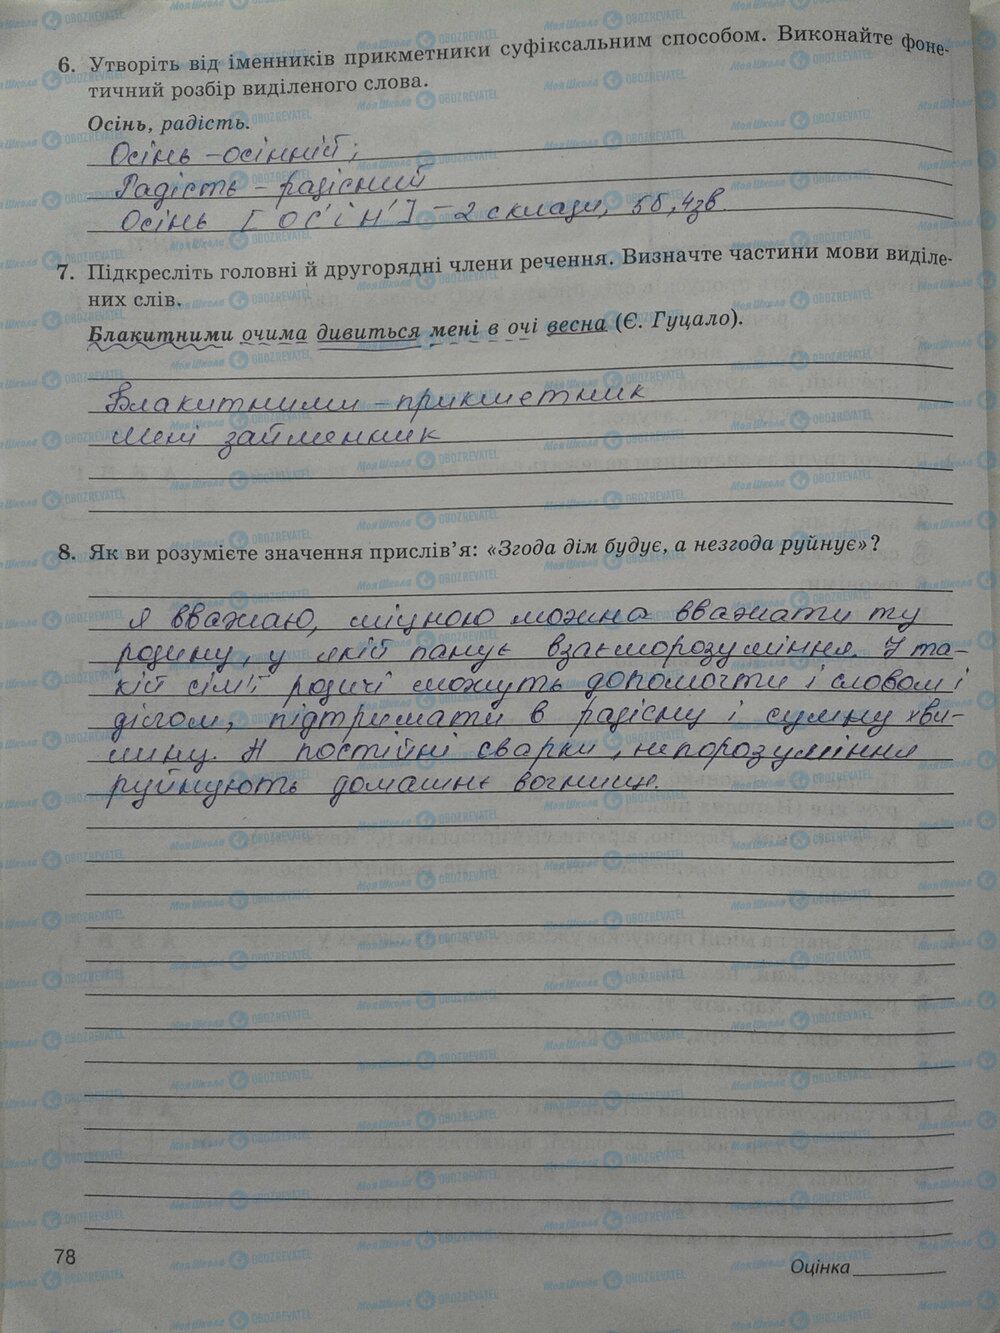 6. Утворіть від іменників прикметники суфіксальним способом. Виконайте фоне-
тичний розбір виділеного слова.
Осінь, радість.
Осінь – осінній;
Радість – радісний
Осінь [ос'ін'] – 2 склади, 5б, 4зв.
7. Підкресліть головні й другорядні члени речення. Визначте частини мови виділе-
них слів.
Блакитними очима дивиться мені в очі весна (Є. Гуцало).
Блакитними – прикметник
Мені займенник
8. Як ви розумієте значення прислів’я: «Згода дім будує, а незгода руйнує»?
Я вважаю, міцною можна вважати ту
родину, у якій панує взаєморозуміння. У та-
кій сім'ї родичі можуть допомогти і словом і
ділом, підтримати в радісну і сумну хви-
лину. А постійні сварки, непорозуміння
руйнують домашнє вогнище.
78
Оцінка